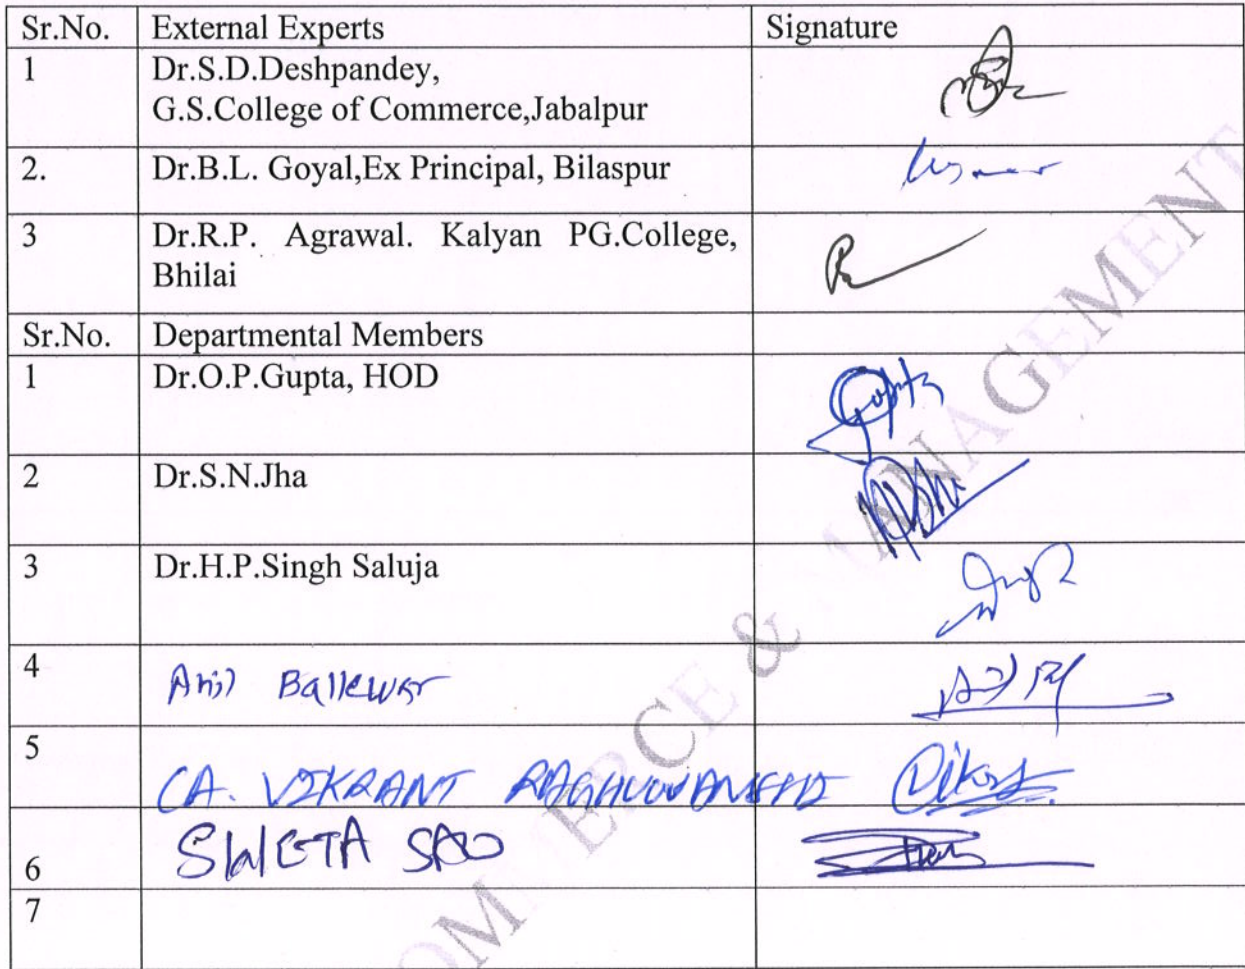 Sr.No. External Experts Signature
1 Dr.S.D.Deshpandey,
G.S.College of Commerce,Jabalpur
2. Dr.B.L. Goyal,Ex Principal, Bilaspur
3 Dr.R.P. Agrawal. Kalyan PG.College,
Bhilai
Sr.No. Departmental Members
1 Dr.O.P.Gupta, HOD
Gupta
2 Dr.S.N.Jha
3 Dr.H.P.Singh Saluja
4 Anil Ballewar
5
CA. VIKRANT RAGHUVANSHI
6 SWETA SAO
7
OMMERCE & MANAGEMENT